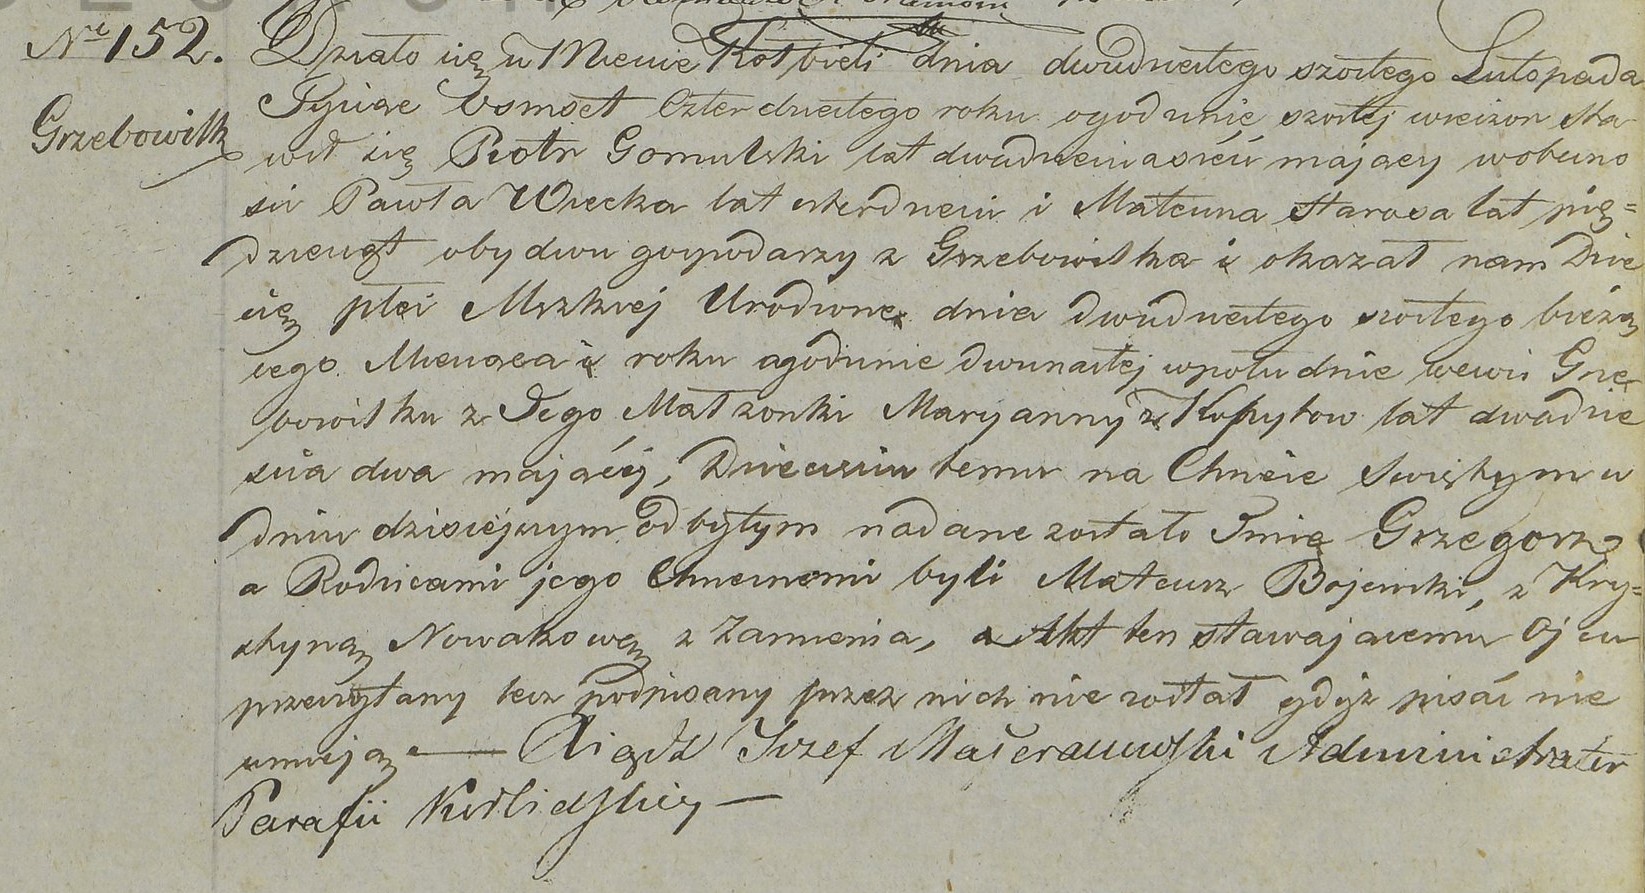 No 152. Działo się w Mieście Kołbieli dnia dwudziestego szostego Listopada
Tysiąc Osmset Czterdziestego roku ogodzinie szostej wieczor Sta
Grzebowilk
wił się Piotr Gomulski lat dwadzieścia sześć mający wobecno
ści Pawła Wiecka lat czterdzieści i Mateusza Starosa lat pię=
dziesiąt obydwu gospodarzy z Grzebowilka i okazał nam Dzie
cię płci Męzkiej Urodzone dnia dwudziestego szostego bieżą
cego Miesiąca i roku ogodzinie dwunastej wpołudnie wewsi Grze
bowilku z Jego Małżonki Maryanny z Kopytow lat dwadzie
ścia dwa mającej, Dziecięciu temu na Chrzcie Świętym w
dniu dzisiejszym odbytym nadane zostało Imie Grzegorz
a Rodzicami jego Chrzesnemi byli Mateusz Bojewski, z Kry=
styną Nowakową z Zamienia, a Akt ten stawającemu Ojcu
przeczytany lecz podpisany przez nich nie został gdyż pisać nie
umieją — Xiądz Jozef Administrator
Parafii